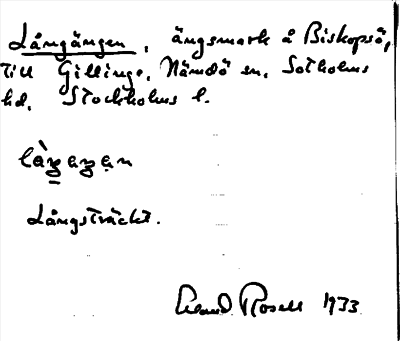 Långängen, ängsmark å Biskopsö,
till Gillinge, Nämdö sn, Sotholms
hd, Stockholms l.
Långsträckt.
Rosell 1933